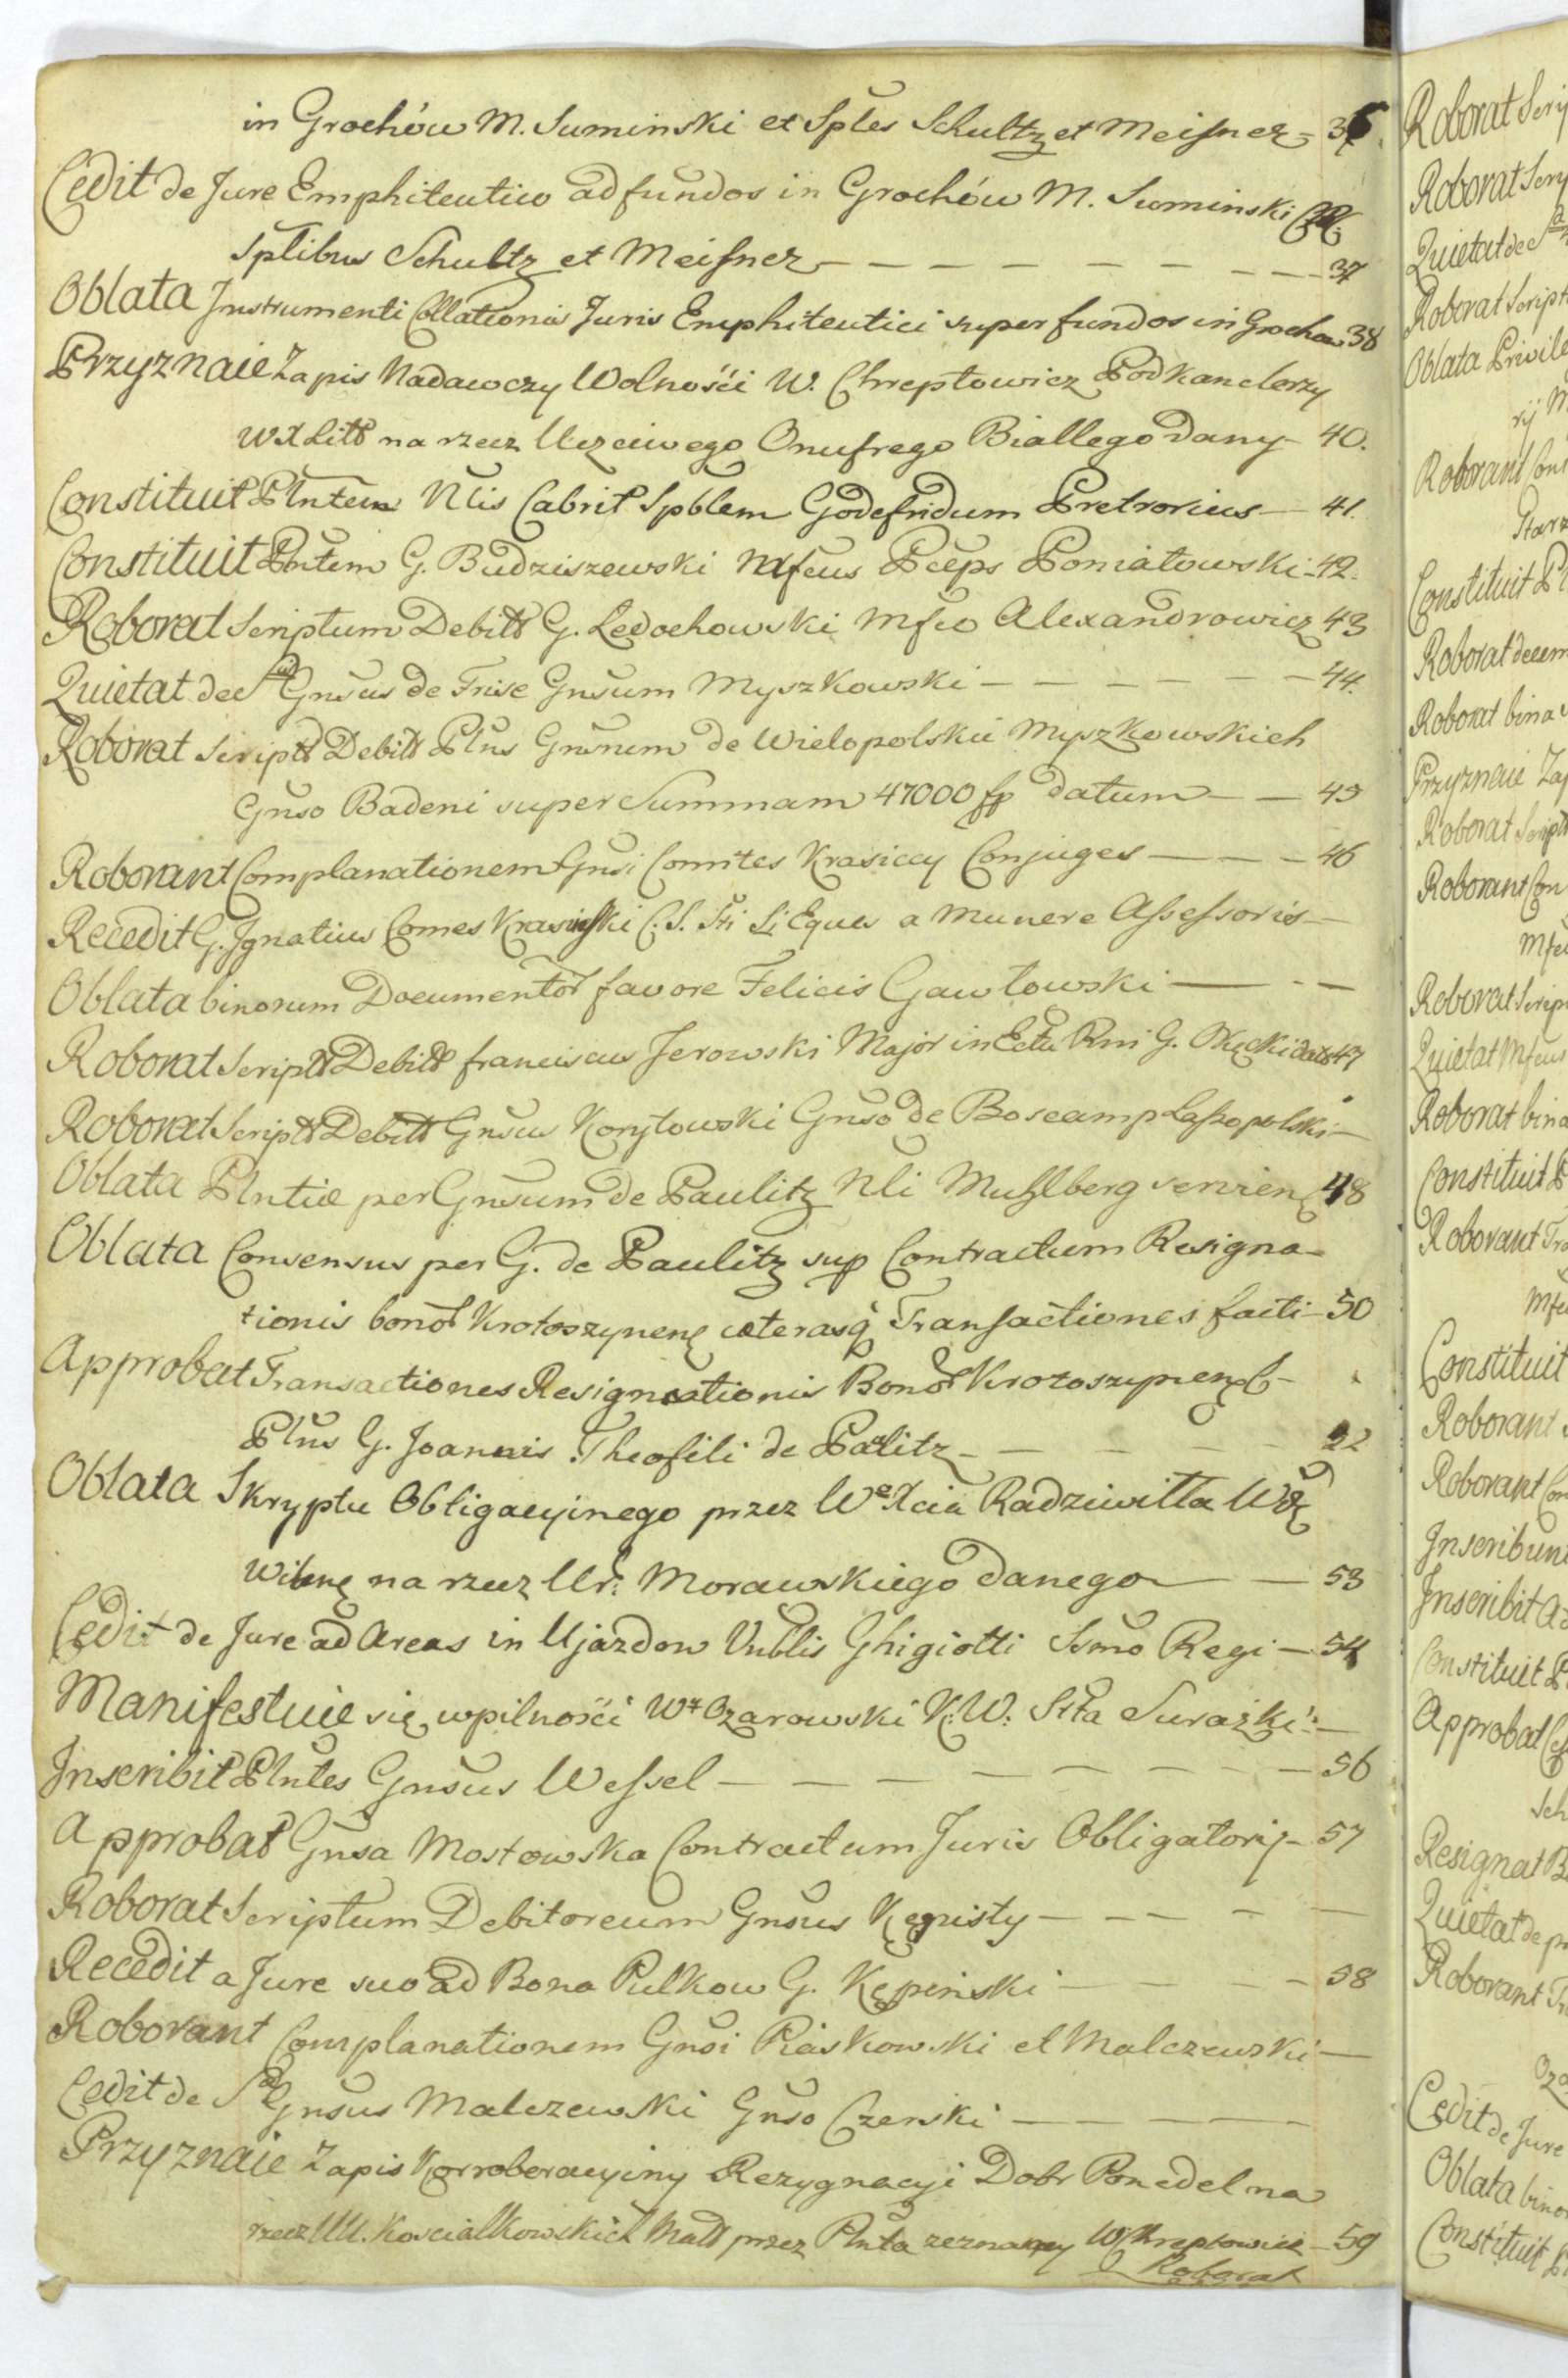 in Grochów M. Suminski et Sptes Schultz et Meisner 36
Cedit de Jure Emphiteutico ad fundos in Grochów M. Suminski
Sptibus Schultz et Meisner 37
Oblata Instrumenti Collationis Juris Emphiteutici super fundos in Grochow 38
Przyznaie Zapis Nadawczy Wolności W. Chreptowicz Podkanclerzy
WXLitt na rzecz Uczciwego Onufrego Biallego dany 40.
Constituit Plntem Nlis Cabrit Spblem Godefridum Pretrorius 41.
Constituit Plntem G. Budziszewski Mfcus Pceps Poniatowski 42.
Roborat Scriptum Debitt G. Ledochowski Mfco Alexandrowicz 43
Quietat de Sa Gnsus de Frise Gnsum Myszkowski 44.
Roborat Scriptt Debitt Plns Gnsnem de Wielopolskie Myszkowskich
Gnso Badeni super Summam 47000 fp datum 45
Roborant Complanationem Gnsi Comites Krasiccy Conjuges 46
Recedit G. Ignatius Comes Krasiński C. S. Sti Li Eques a Munere Assessoris
Oblata binorum Documentor favore Felicis Gawlowski
Roborat Scriptt Debitt franciscus Jerowski Major in Ectu Rni G. Okęcki datt 47
Roborat Scriptt Debitt Gnsus Korytowski Gnso de Boscamp Lassopolski
Oblata Plntiæ per Gnsum de Paulitz Nli Muhlberg servien 48
Oblata Consensus per G. de Paulitz sup Contractum Resigna-
tionis bonor Krotoszynen cæterasq Transactiones facti 50
Approbat Transactiones Resignationis Bonor Krotoszynen
Plns G. Joannis Theofili de Palitz 52
Oblata Skryptu Obligacyinego przez We Xcia Radziwiłła Wdę
Wilenę na rzecz Ur: Morawskiego danego 53
Cedit de Jure ad Areas in Ujazdow Vnblis Ghigiotti Ssmo Regi 54
Manifestuie się w pilności Wz Ozarowski K: W: Stta Surazki
Inscribit Plntes Gnsus Wessel 56
Approbat Gnsa Mostowska Contractum Juris Obligatorij 57
Roborat Scriptum Debitoreum Gnsus Kępisty
Recedit a Jure suo ad Bona Pulkow G. Kępinski 58
Roborant Complanationem Gnsi Piaskowski et Malczewski
Cedit de Sa Gnsus Malczewski Gnso Czerski
Przyznaie Zapis Korroboracyiny Rezygnacyi Dobr Ponedel na
rzecz UU. Koscialkowskich Matt przez Plnta zeznany W. Chreptowicz 59
Roborat
Roborat Scrip
Roborat Scrip
Quietat de Sa
Roborat Script
Oblata Privile
rij M
Roborant Cons
Starz
Constituit Pl
Roborat decem
Roborat bina
Przyznaie Zap
Roborat Script
Roborant Con
Mfcu
Roborat Scrip
Quietat Mfcus
Roborat bina
Constituit P
Roborant Tra
Mfc
Constituit
Roborant
Roborant Com
Inscribunt
Inscribit A
Constituit P
Approbat
Sch
Resignat B
Quietat de pr
Roborant Tr
Oza
Cedit de Jure
Oblata bino
Constituit Pl